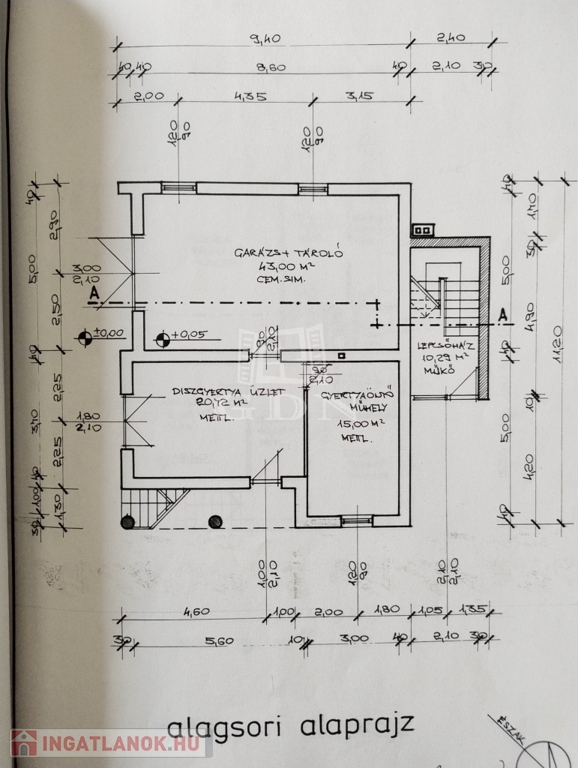 9,40
2,40
40
40
8,60
40
2,10
30
2,00
4,35
3,15
120
90
120
90
GARÁZS + TÁROLÓ
43,00 M²
CEM. SIM.
3,00
2,10
A
A
±0,00
+0,05
LÉPCSŐHÁZ
10,29 M²
MŰKŐ
90
2,10
90
2,10
DÍSZGYERTYA ÜZLET
20,72 M²
METL.
GYERTYAÖNTŐ
MŰHELY
15,00 M²
METL.
GDN
1,80
2,10
40
2,90
5,00
2,50
40
2,25
3,70
2,25
40
1,00
1,30
30
40
1,70
30
5,00
4,90
11,20
40
10
5,00
4,20
40
1,00
2,10
120
90
2,10
2,10
4,60
1,00
2,00
1,80
1,05
1,35
30
5,60
10
3,00
40
2,10
30
alagsori alaprajz
ÉSZAK
INGATLANOK.HU